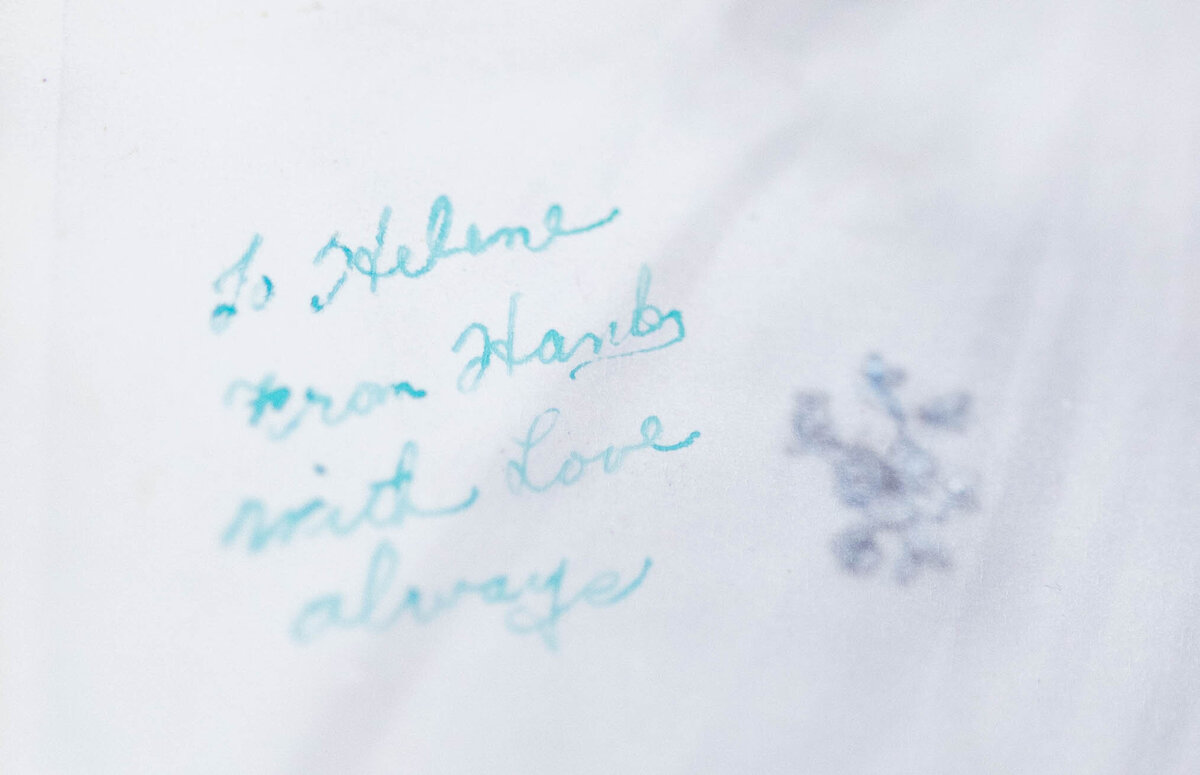 To Helene
From Hank
with Love
always